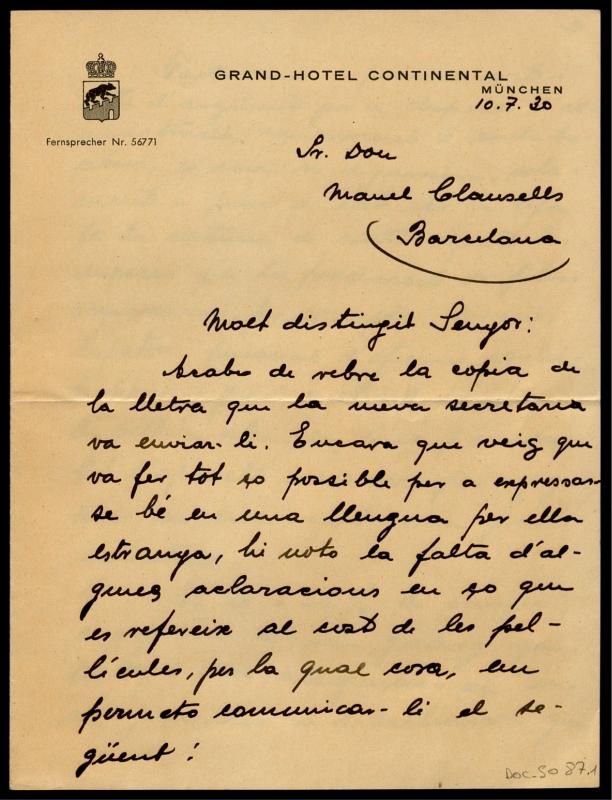 GRAND-HOTEL CONTINENTAL
MÜNCHEN
10.7.30
Fernsprecher Nr. 56771
Sr. Don
Manel Clausells
Barcelona
Molt distingit Senyor:
Acabo de rebre la copia de
la lletra que la meva secretaria
va enviar-li. Encara que veig que
va fer tot ço possible per a expressar-
se bé en una llengua per ella
estranya, hi noto la falta d'al-
gunes aclaracions en ço que
es refereix al cost de les pel-
lícules, per la qual cosa, em
permeto comunicar-li el se-
güent:
DOC-5087.1